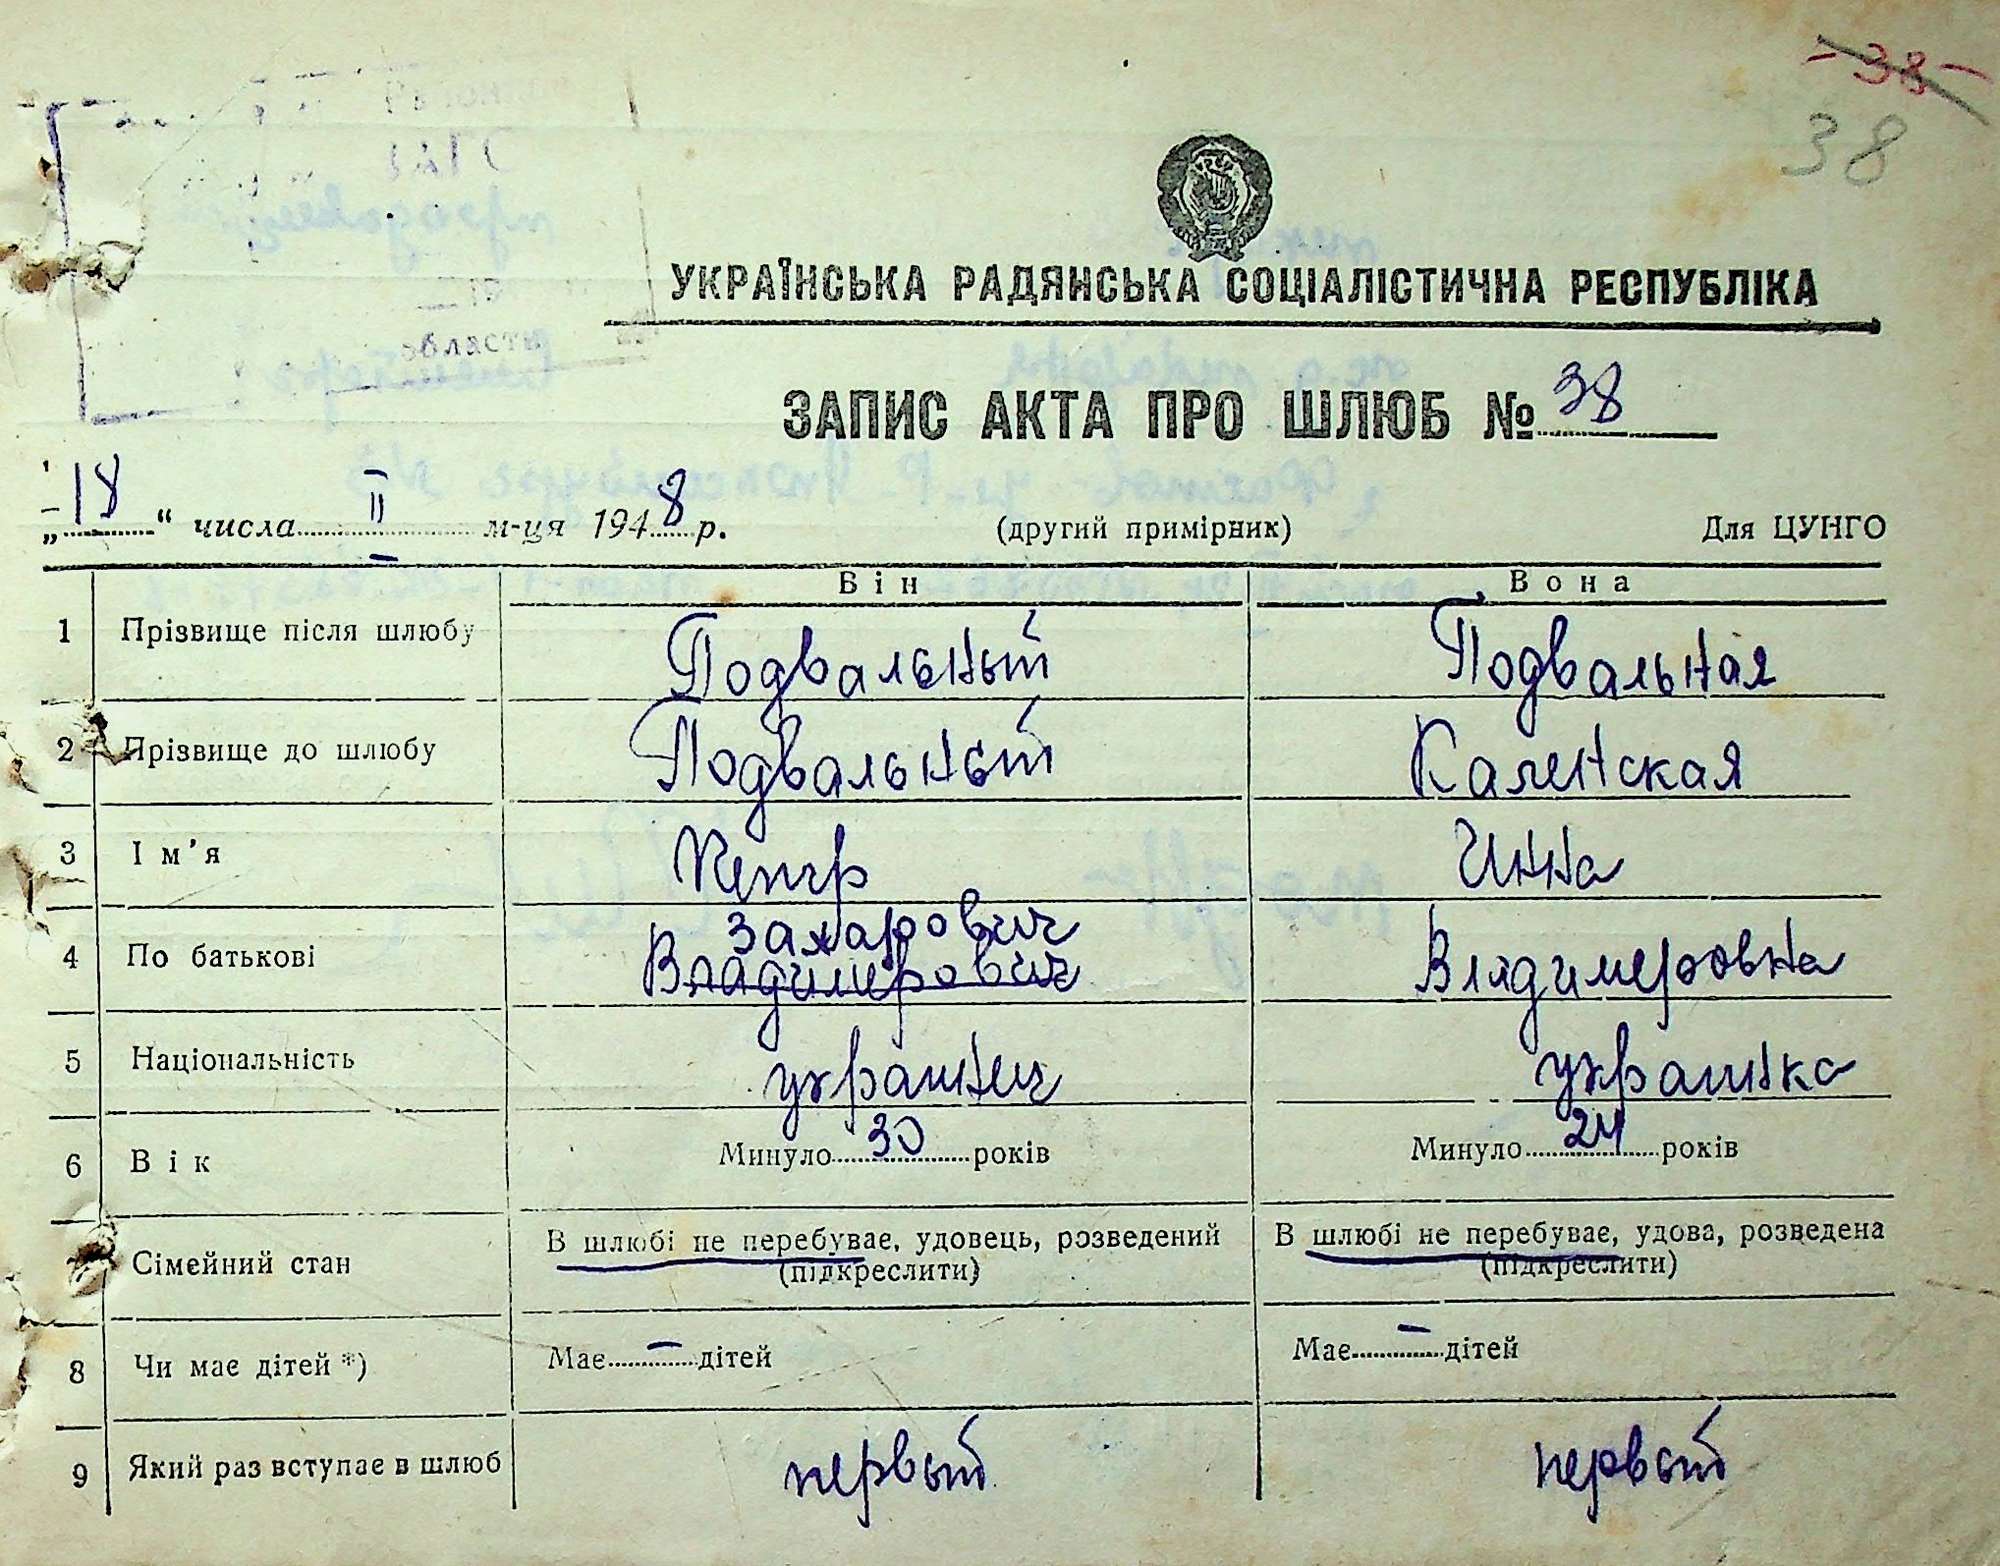 -38-
38
УКРАЇНСЬКА РАДЯНСЬКА СОЦІАЛІСТИЧНА РЕСПУБЛІКА
области
ЗАПИС АКТА ПРО ШЛЮБ № 38
„18“ числа II м-ця 1948 р. (другий примірник) Для ЦУНГО
Він Вона
1 Прізвище після шлюбу Подвальный Подвальная
2 Прізвище до шлюбу Подвальный Каленская
3 Ім’я Петр Инна
Захарович
4 По батькові Владимерович Владимеровна
5 Національність украинец украинка
6 Вік Минуло 30 років Минуло 24 років
Сімейний стан В шлюбі не перебуває, удовець, розведений В шлюбі не перебуває, удова, розведена
(підкреслити) (підкреслити)
8 Чи має дітей *) Має — дітей Має — дітей
9 Який раз вступає в шлюб первый первый